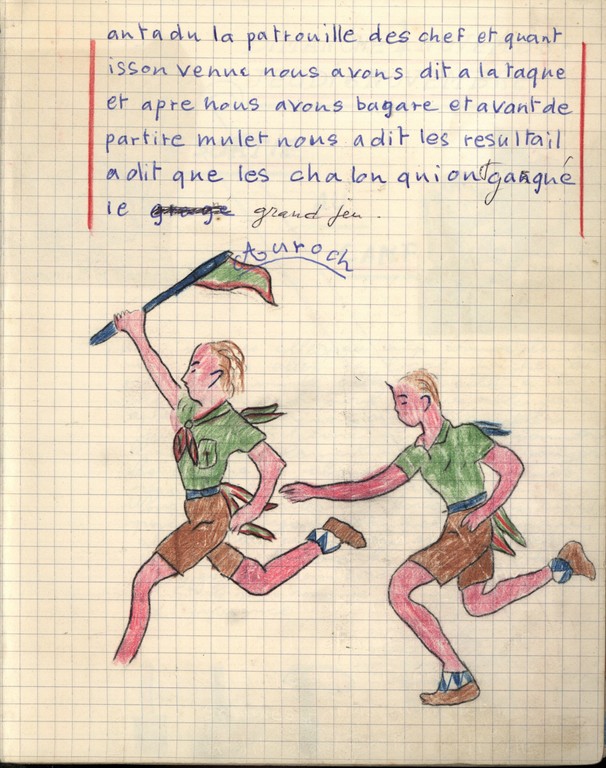 antadu la patrouille des chef et quant
isson venue nous avons dit a la taque
et apre nous avons bagare et avant de
partire mulet nous a dit les resultail
a dit que les chalon qui ont gangué
le grand jeu.
Auroch